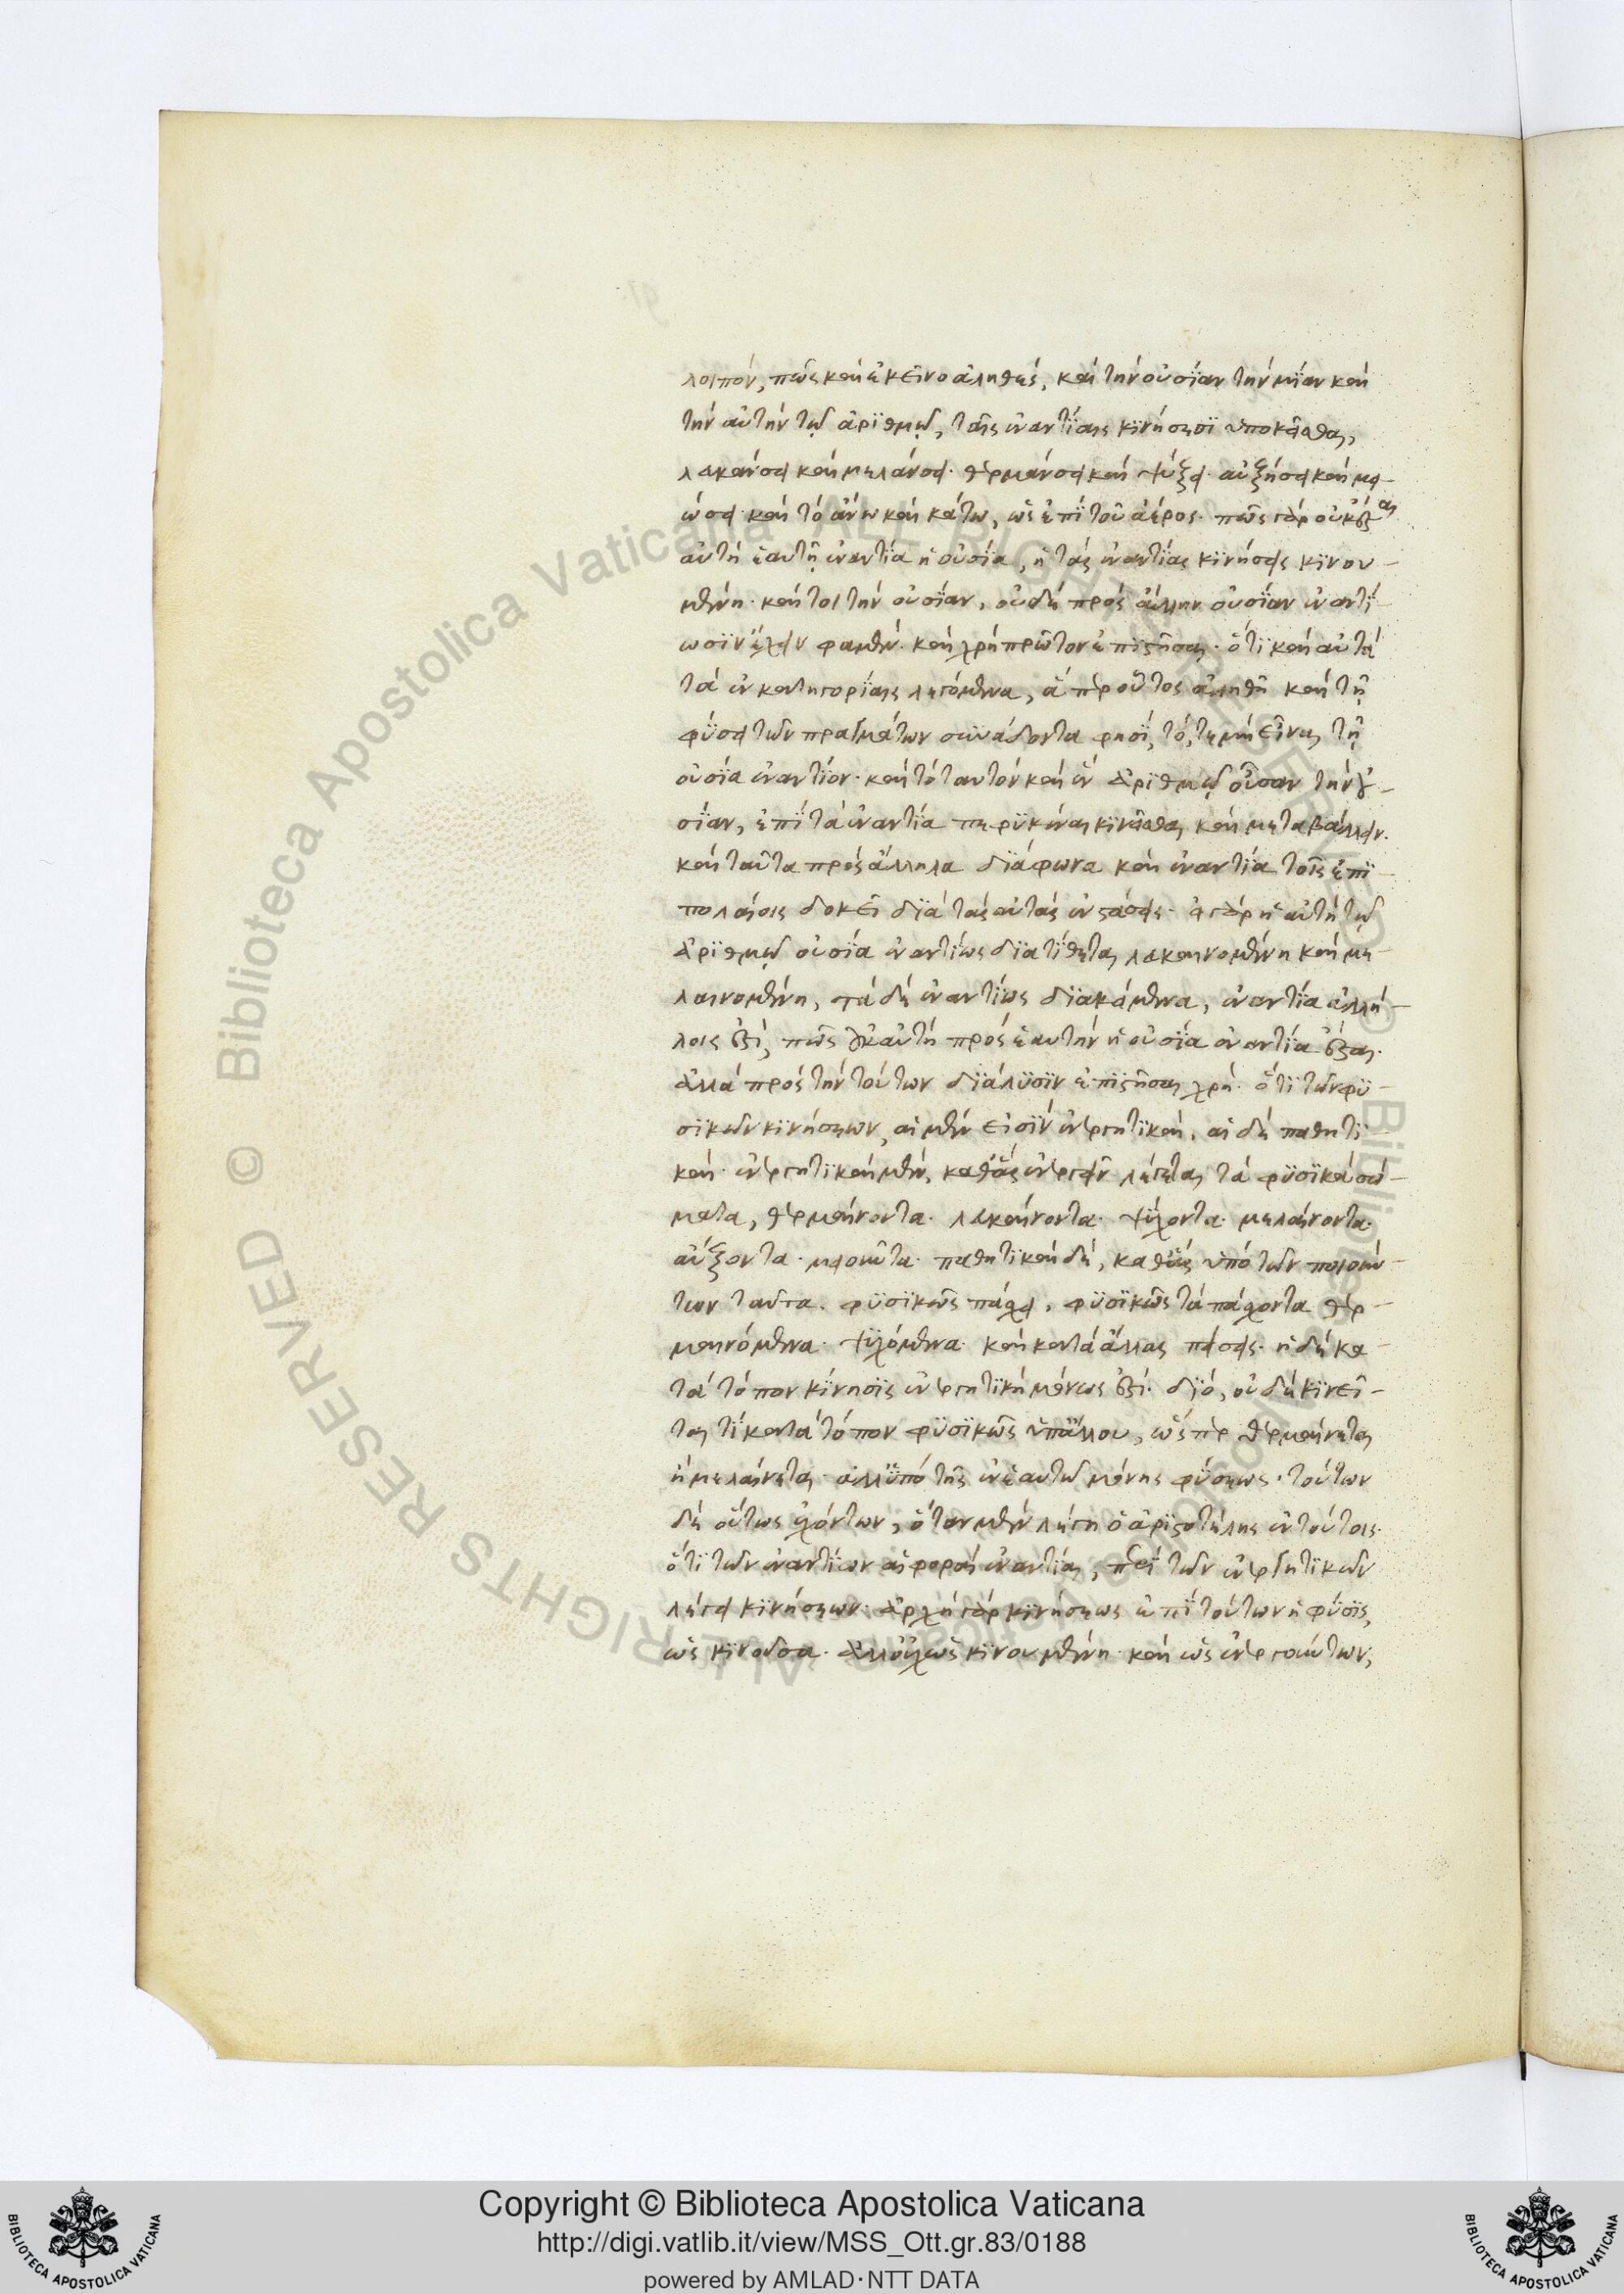 λοιπὸν, πῶς καὶ ἐκεῖνο ἀληθὲς, καὶ τὴν οὐσΐαν τὴν μΐαν καὶ
τὴν αὐτὴν τῷ ἀρϊθμῷ, ταῖς ἐναντΐαις κϊνήσεσϊ ὑποκεῖσθαι,
λευκάνσει καὶ μελάνσει· θερμάνσει καὶ ψύξει· αὐξήσει καὶ μει-
ώσει· καὶ τὸ ἄνω καὶ κάτω, ὡς ἐπῒ τοῦ ἀέρος· πῶς γὰρ οὐκ ἔσται
αὐτὴ ἑαυτῇ ἐναντΐα ἡ οὐσΐα, ἡ τὰς ἐναντΐας κϊνήσεις κϊνου-
μένη· καὶ τοι τὴν οὐσΐαν, οὐδὲ πρὸς ἄλλην οὐσΐαν ἐναντΐ-
ωσϊν ἔχειν φαμέν· καὶ χρὴ πρῶτον ἐπϊστῆσαι· ὅτϊ καὶ αὐτὰ
τὰ ἐν κατηγορΐαις λεγόμενα, ἅπερ οὗτος ἀληθῆ καὶ τῇ
φύσει τῶν πραγμάτων συνάδοντα φησῒ, τό, τε μὴ εἶναι τῇ
οὐσΐα ἐναντΐον· καὶ τὸ ταυτὸν καὶ ἓν ἀρϊθμῷ οὖσαν τὴν οὐ-
σΐαν, ἐπῒ τὰ ἐναντΐα πεφϋκέναι κϊνεῖσθαι καὶ μεταβάλλειν·
καὶ ταῦτα πρὸς ἄλληλα δϊάφωνα καὶ ἐναντΐα τοῖς ἐπϊ-
πολαίοις δοκεῖ δϊὰ τὰς αὐτὰς ἐνστάσεις· εἰ γὰρ ἡ αὐτὴ τῷ
ἀρϊθμῷ οὐσΐα ἐναντΐως δϊατΐθεται λευκαινομένη καὶ με-
λαινομένη, τὰ δὲ ἐναντΐως δϊακείμενα, ἐναντΐα ἀλλή-
λοις ἐστῒ, πῶς οὐκ αὐτὴ πρὸς ἑαυτὴν ἡ οὐσΐα ἐναντΐα ἔσται·
ἀλλὰ πρὸς τὴν τούτων δϊάλϋσϊν ἐπϊστῆσαι χρή· ὅτϊ τῶν φϋ-
σϊκῶν κϊνήσεων, αἱ μέν εἰσϊν ἐνεργητϊκαὶ, αἱ δὲ παθητϊ
καὶ· ἐνεργητϊκαὶ μὲν, καθ' ἃς ἐνεργεῖν λέγεται τὰ φϋσϊκὰ σώ-
ματα, θερμαίνοντα· λευκαίνοντα· ψύχοντα· μελαίνοντα·
αὔξοντα· μειοῦντα· παθητϊκαὶ δὲ, καθ' ἃς ὑπὸ τῶν ποιούν-
των ταῦτα· φϋσϊκῶς πάσχει, φϋσϊκῶς τὰ πάσχοντα θερ-
μαινόμενα· ψϋχόμενα· καὶ κατὰ ἄλλας πείσεις· ἡ δὲ κα-
τὰ τόπον κΐνησϊς ἐνεργητϊκὴ μόνως ἐστΐ· δϊό, οὐδὲ κϊνεῖ-
ταί τϊ κατὰ τόπον φϋσϊκῶς ὑπ' ἄλλου, ὥσπερ θερμαίνεται
ἢ μελαίνεται· ἀλλ' ὑπὸ τῆς ἐν ἑαυτῷ μόνης φύσεως· τούτων
δὲ οὕτως ἐχόντων, ὅταν μὲν λέγη ὁ ἀρϊστοτέλης ἐν τούτοις·
ὅτϊ τῶν ἐναντΐων αἱ φοραὶ ἐναντΐαι, περῒ τῶν ἐνεργητϊκῶν
λέγει κϊνήσεων· ἀρχὴ γὰρ κϊνήσεως ἐπῒ τούτων ἡ φύσϊς,
ὡς κϊνοῦσα· ἀλλ' οὐχ ὡς κϊνουμένη· καὶ ὡς ἐνεργούντων,
Copyright © Biblioteca Apostolica Vaticana
http://digi.vatlib.it/view/MSS_Ott.gr.83/0188
powered by AMLAD·NTT DATA